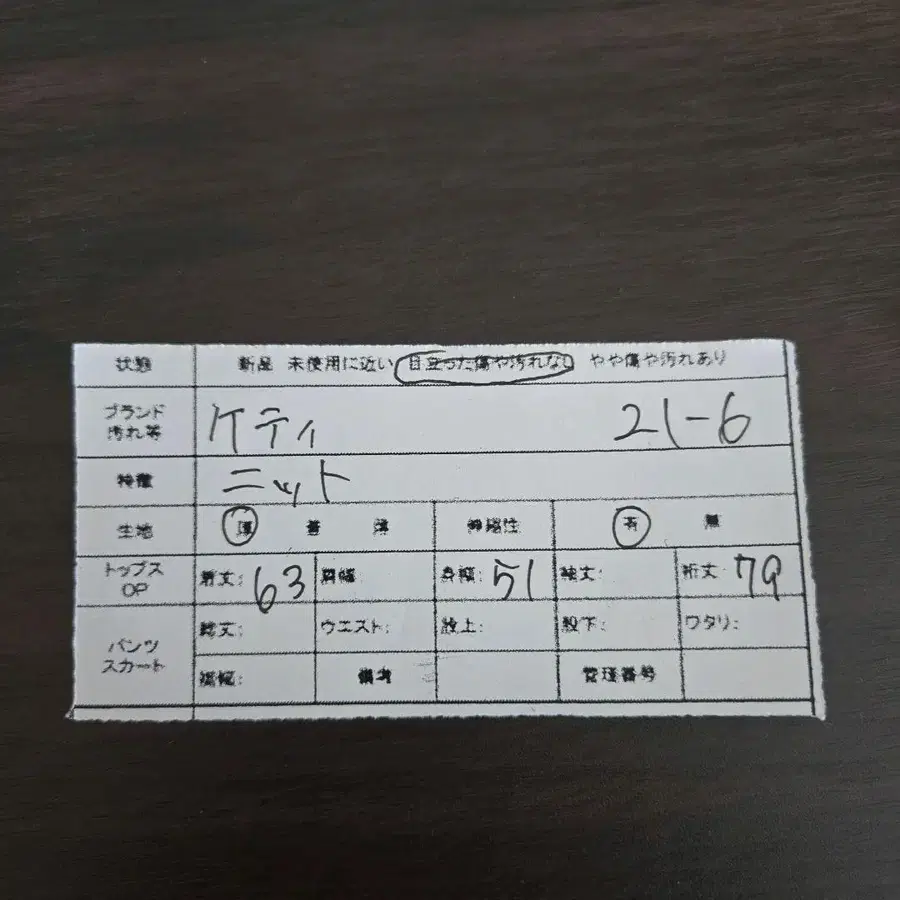 状態 新品 未使用に近い 目立った傷や汚れなし やや傷や汚れあり
ブランド 汚れ等 ケティ 21-6
特徴 ニット
生地 厚 普 薄 伸縮性 有 無
トップス OP 着丈: 63 肩幅: 身幅: 51 袖丈: 裄丈 79
パンツ スカート 総丈: ウエスト: 股上: 股下: ワタリ:
裾幅: 備考 管理番号